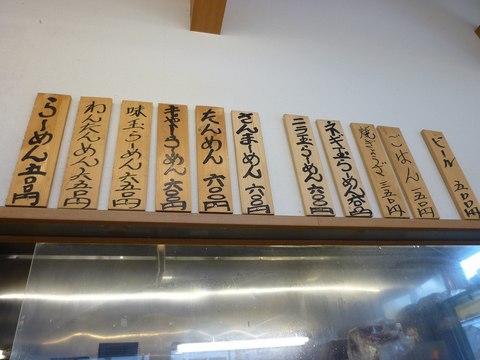 らーめん 五〇〇円
わんたんめん 六五〇円
味玉らーめん 六五〇円
辛みそらーめん 六〇〇円
たんめん 六〇〇円
さんまーめん 六〇〇円
ニラ玉らーめん 六〇〇円
ネギ玉らーめん 六〇〇円
焼ぎょうざ 三五〇円
ごはん 一五〇円
ビール 五〇〇円